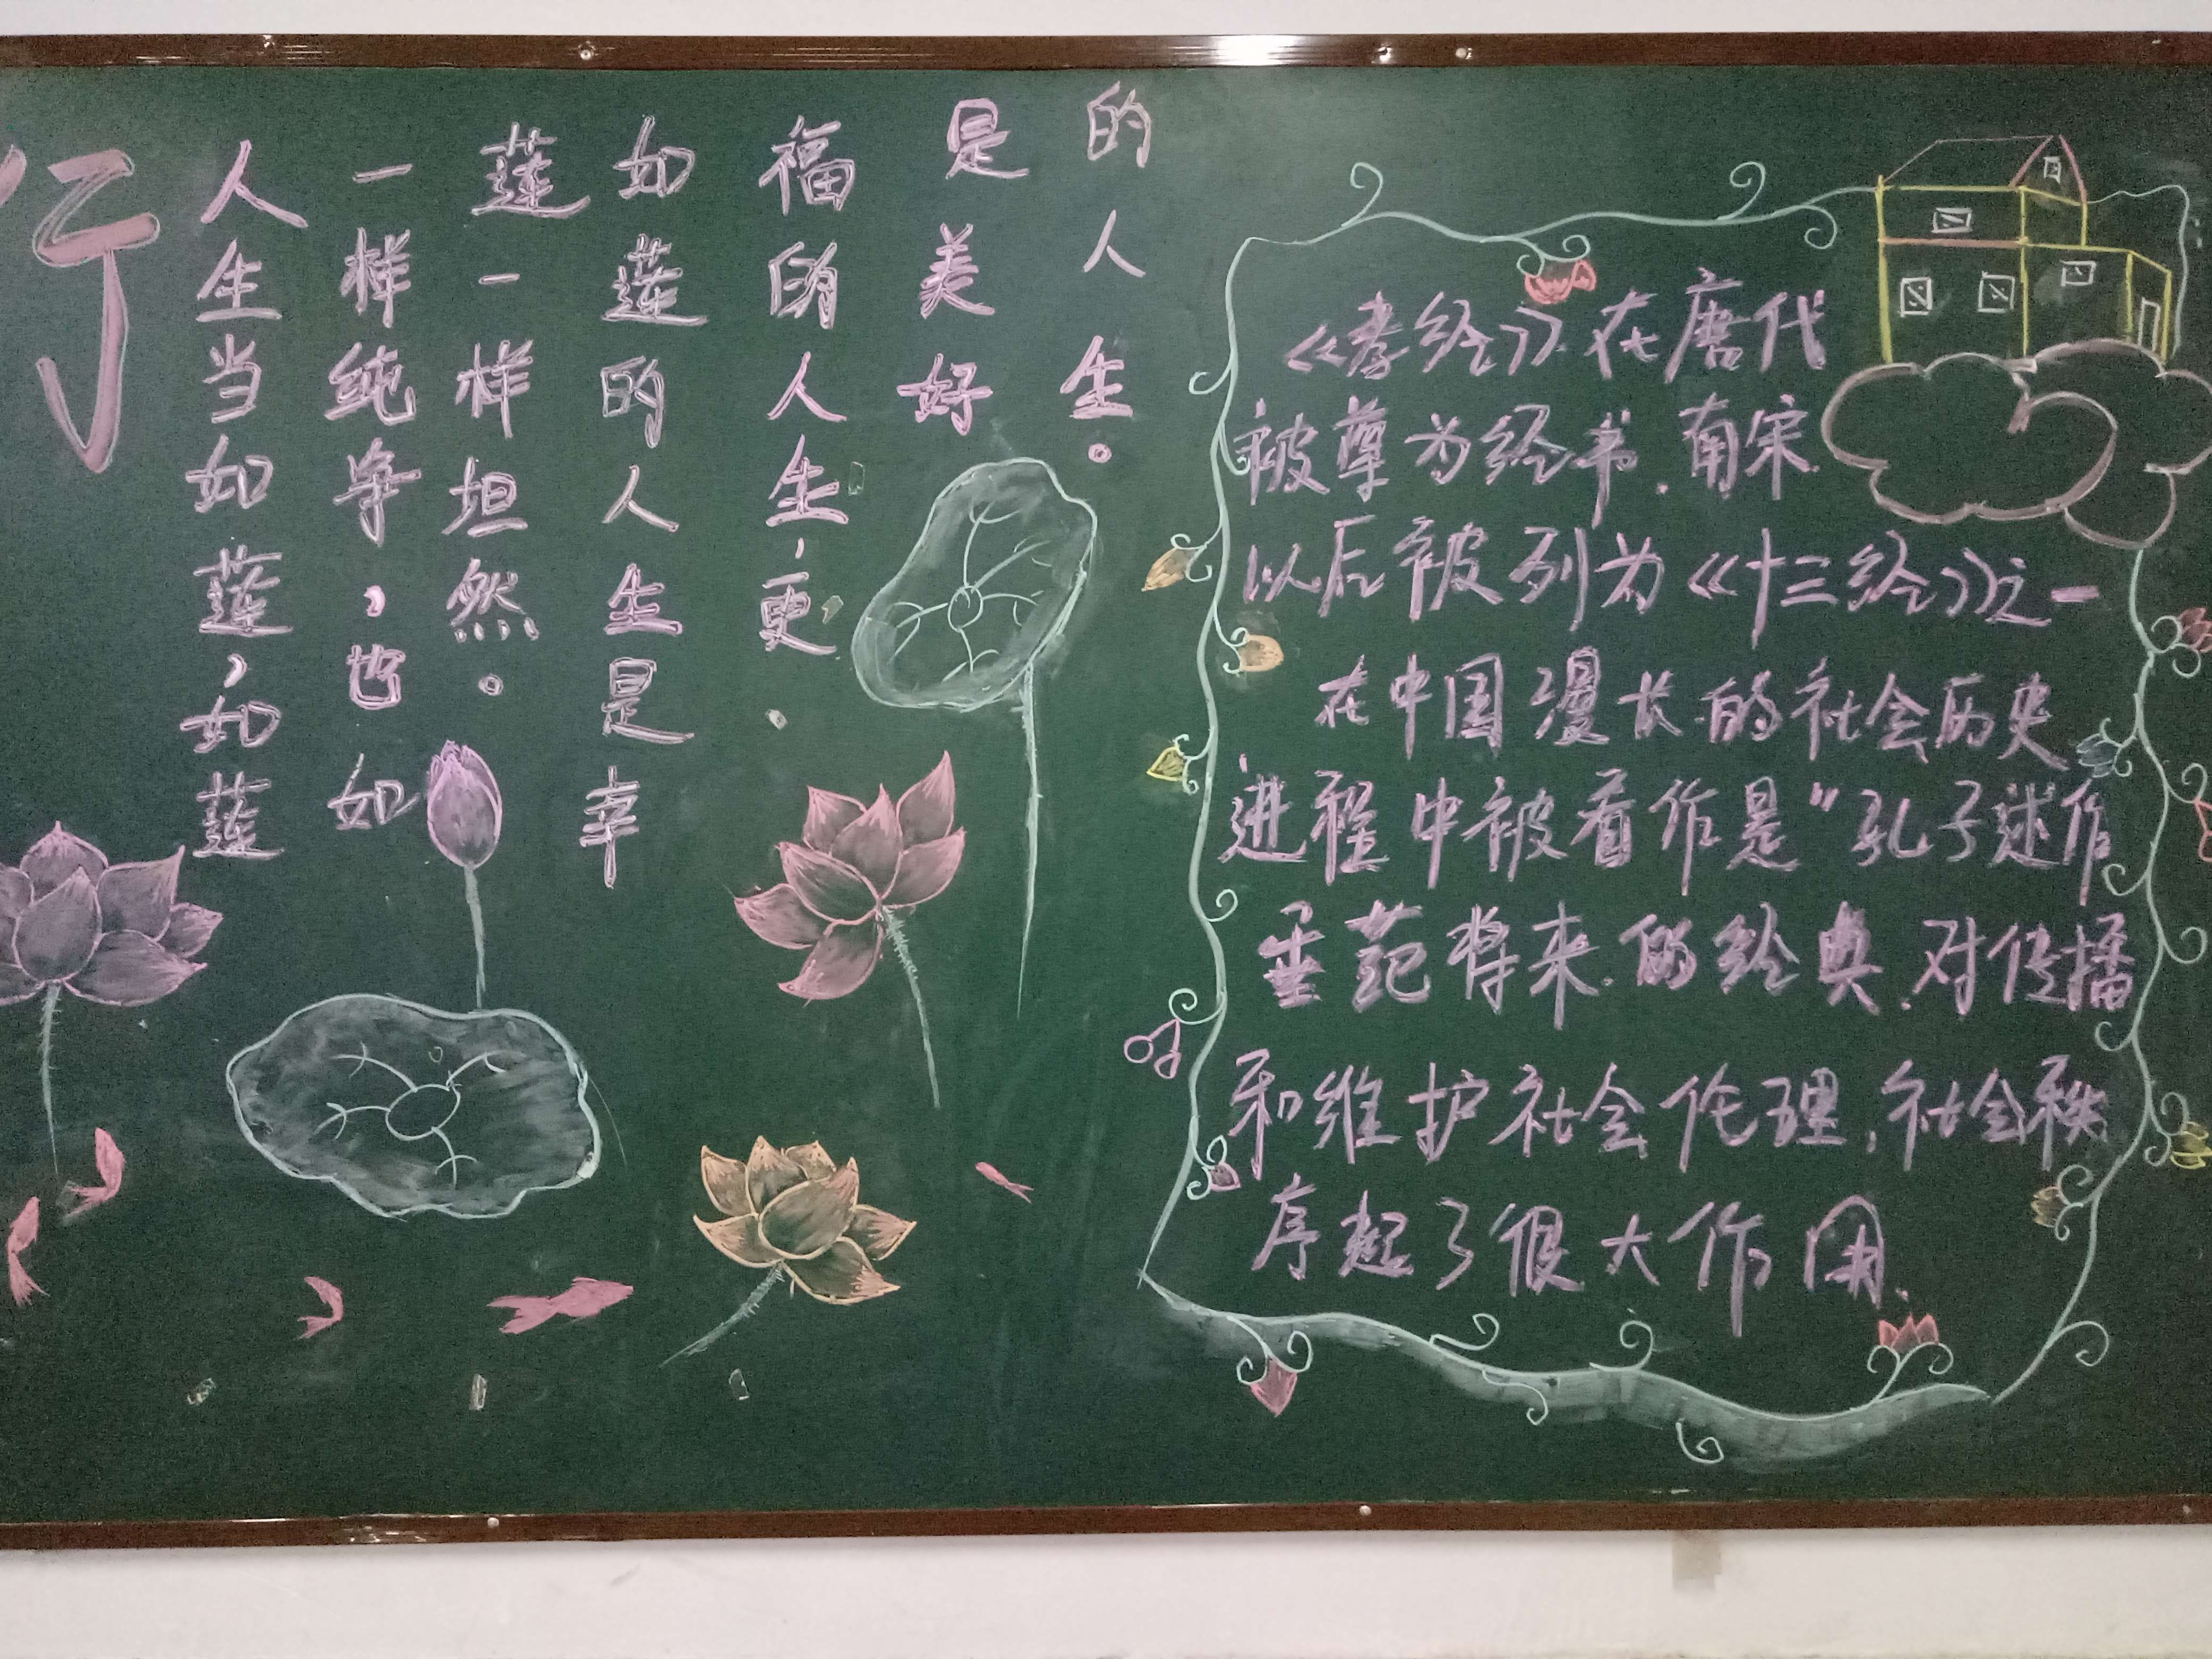 行
人生当如莲，如莲
一样纯净，也如
莲一样坦然。
如莲的人生是幸
福的人生，更
是美好
的人生。
《孝经》在唐代
被尊为经书.南宋.
以后被列为《十三经》之一
在中国漫长的社会历史
进程中被看作是“孔子述作
垂范将来.的经典.对传播
和维护社会伦理,社会秩
序起了很大作用.